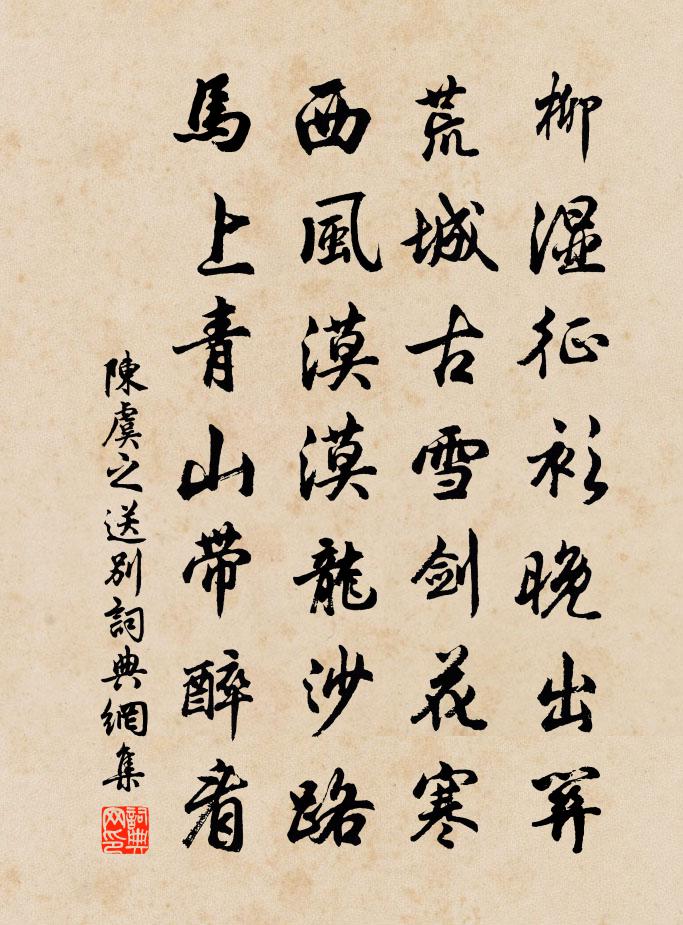 柳湿征衫晚出關
荒城古雪剑花寒
西風漠漠龍沙路
馬上青山带醉看
陳虞之送别詞典網集
詞典网印